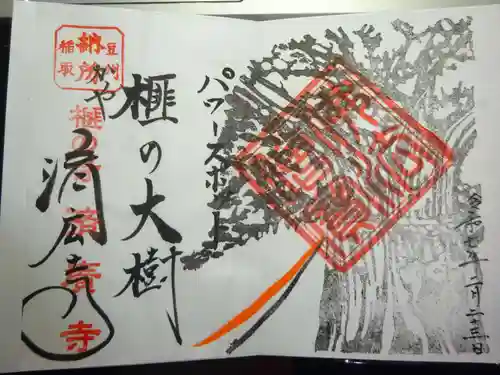 令和七年一月二十三日
パワースポット
かや
榧の大樹
豆州
納所
稲取
済広寺
榧の寺済廣寺